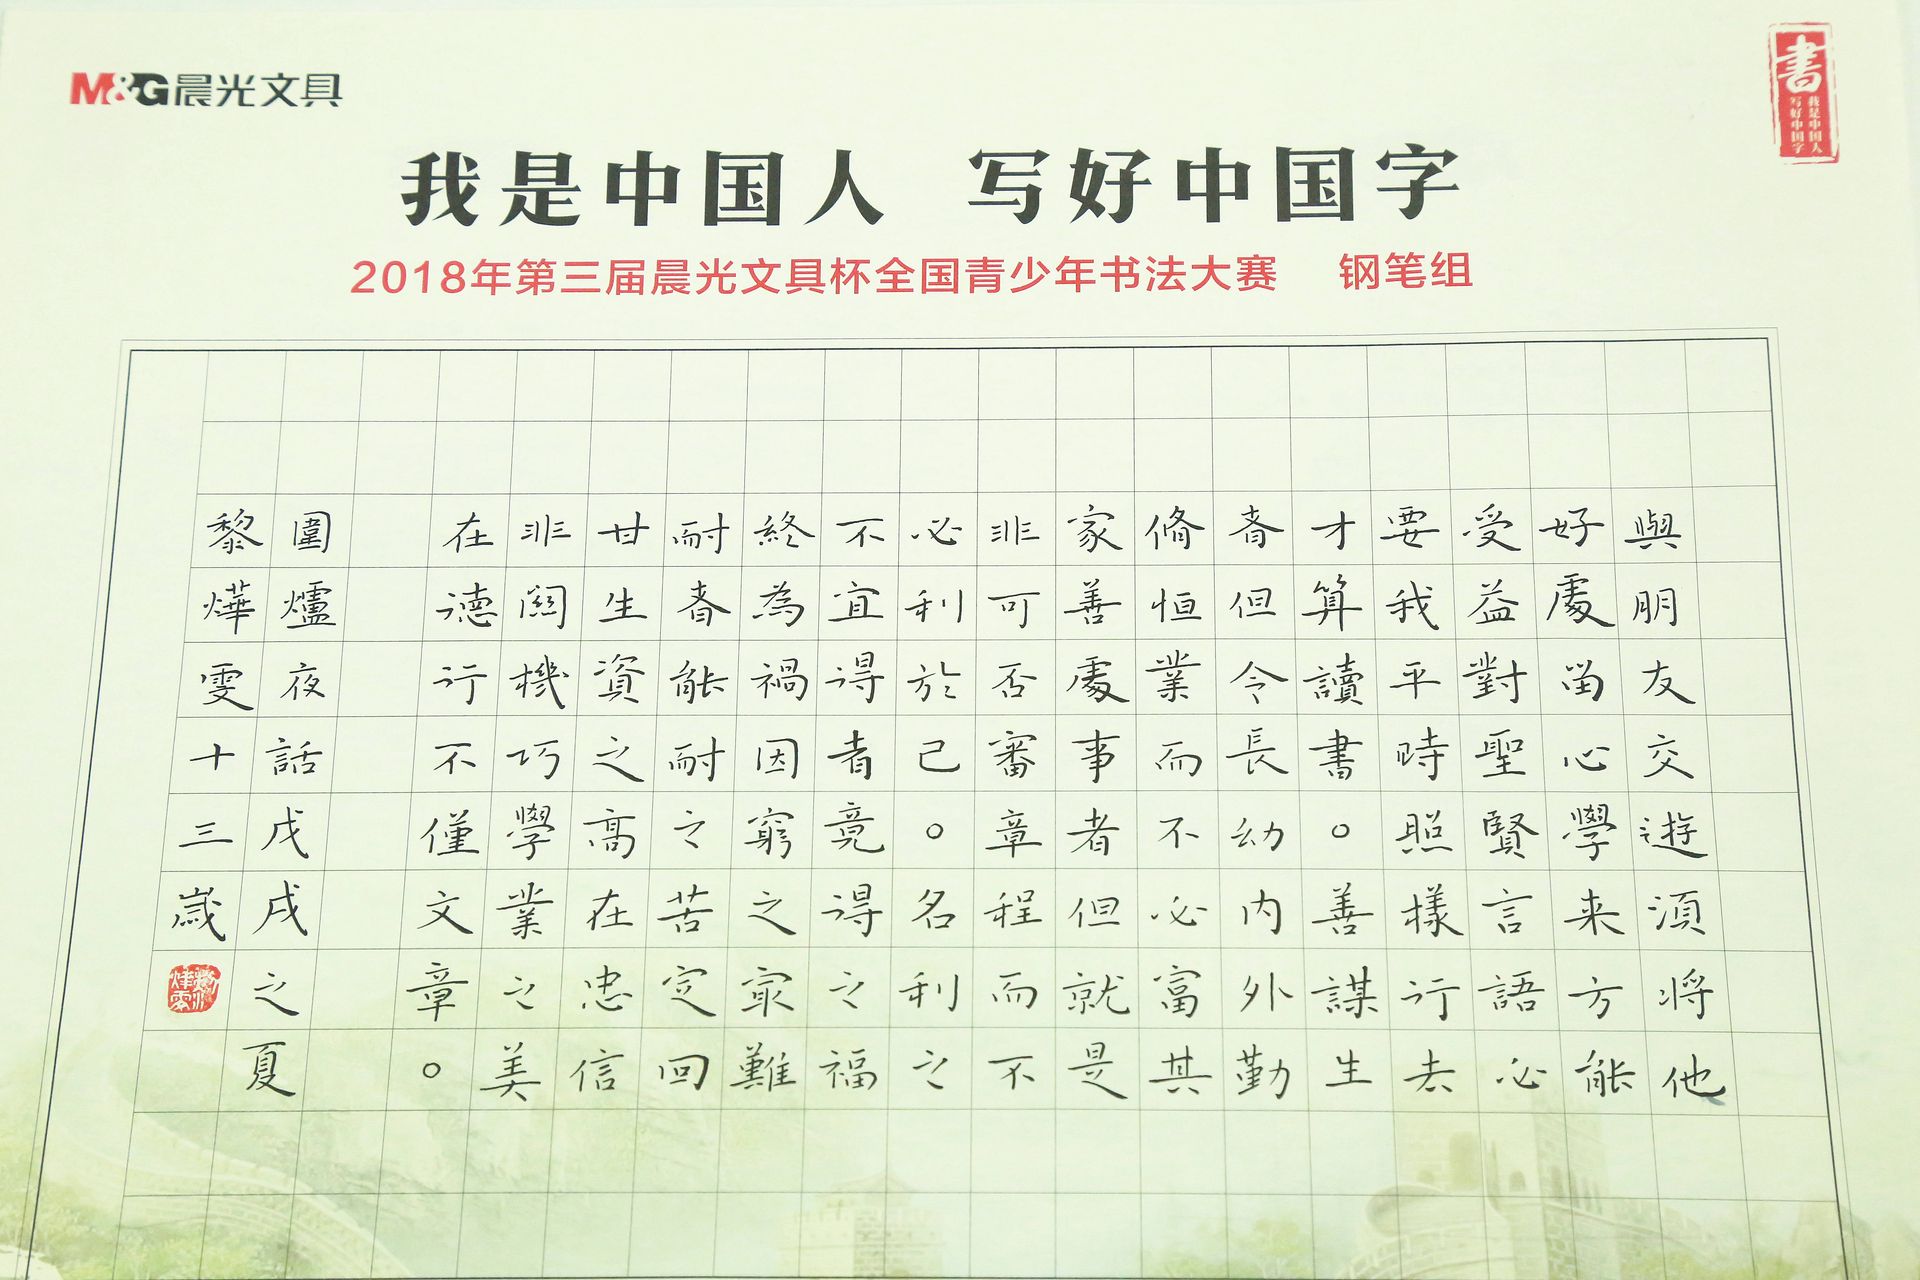 M&G晨光文具
書
我是中国人
写好中国字
我是中国人 写好中国字
2018年第三届晨光文具杯全国青少年书法大赛 钢笔组
與朋友交遊須將他
好處留心學来方能
受益對聖賢言語必
要我平時照樣行去
才算讀書。善謀生
者但令長幼内外勤
脩恒業而不必富其
家善處事者但就是
非可否審章程而不
必利於己。名利之
不宜得者竟得之福
終為禍因窮之最難
耐者能耐之苦定回
甘生資之高在忠信
非關機巧學業之美
在德行不僅文章。
圍爐夜話戊戌之夏
黎燁雯十三歲